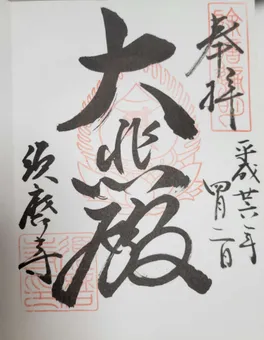 奉拝
平成廿六年
四月二日
大悲殿
須磨寺